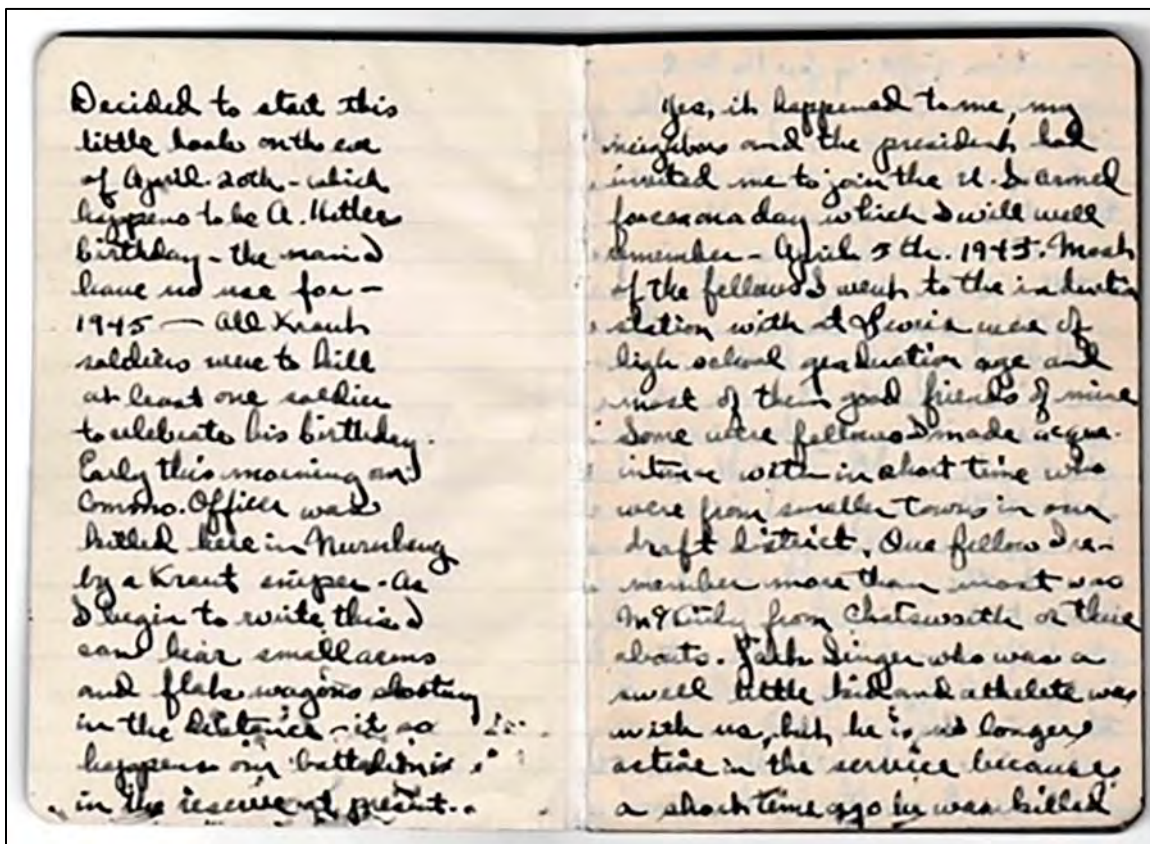 Decided to start this
little book on the eve
of April 20th - which
happens to be A. Hitlers
birthday - the man I
have no use for -
1945 — All Kraut
soldiers were to kill
at least one soldier
to celebrate his birthday.
Early this morning our
Commo. Officer was
killed here in Nurnberg
by a Kraut sniper - As
I begin to write this I
can hear small arms
and flak wagons shooting
in the distance - it so
happens our battalion is
in the reserve at present.
Yes, it happened to me, my
neighbors and the president had
invited me to join the U.S. armed
forces on a day which I will well
remember - April 5th. 1945. Most
of the fellows I went to the induction
station with were of
high school graduation age and
most of them good friends of mine
Some were fellows I made acqua-
intence with in short time who
were from smaller towns in our
draft district. One fellow I re-
member more than most was
from Chatsworth or there
abouts. Jack Singer who was a
swell little kid and athelete was
with us, but he is no longer
active in the service because
a short time ago he was killed